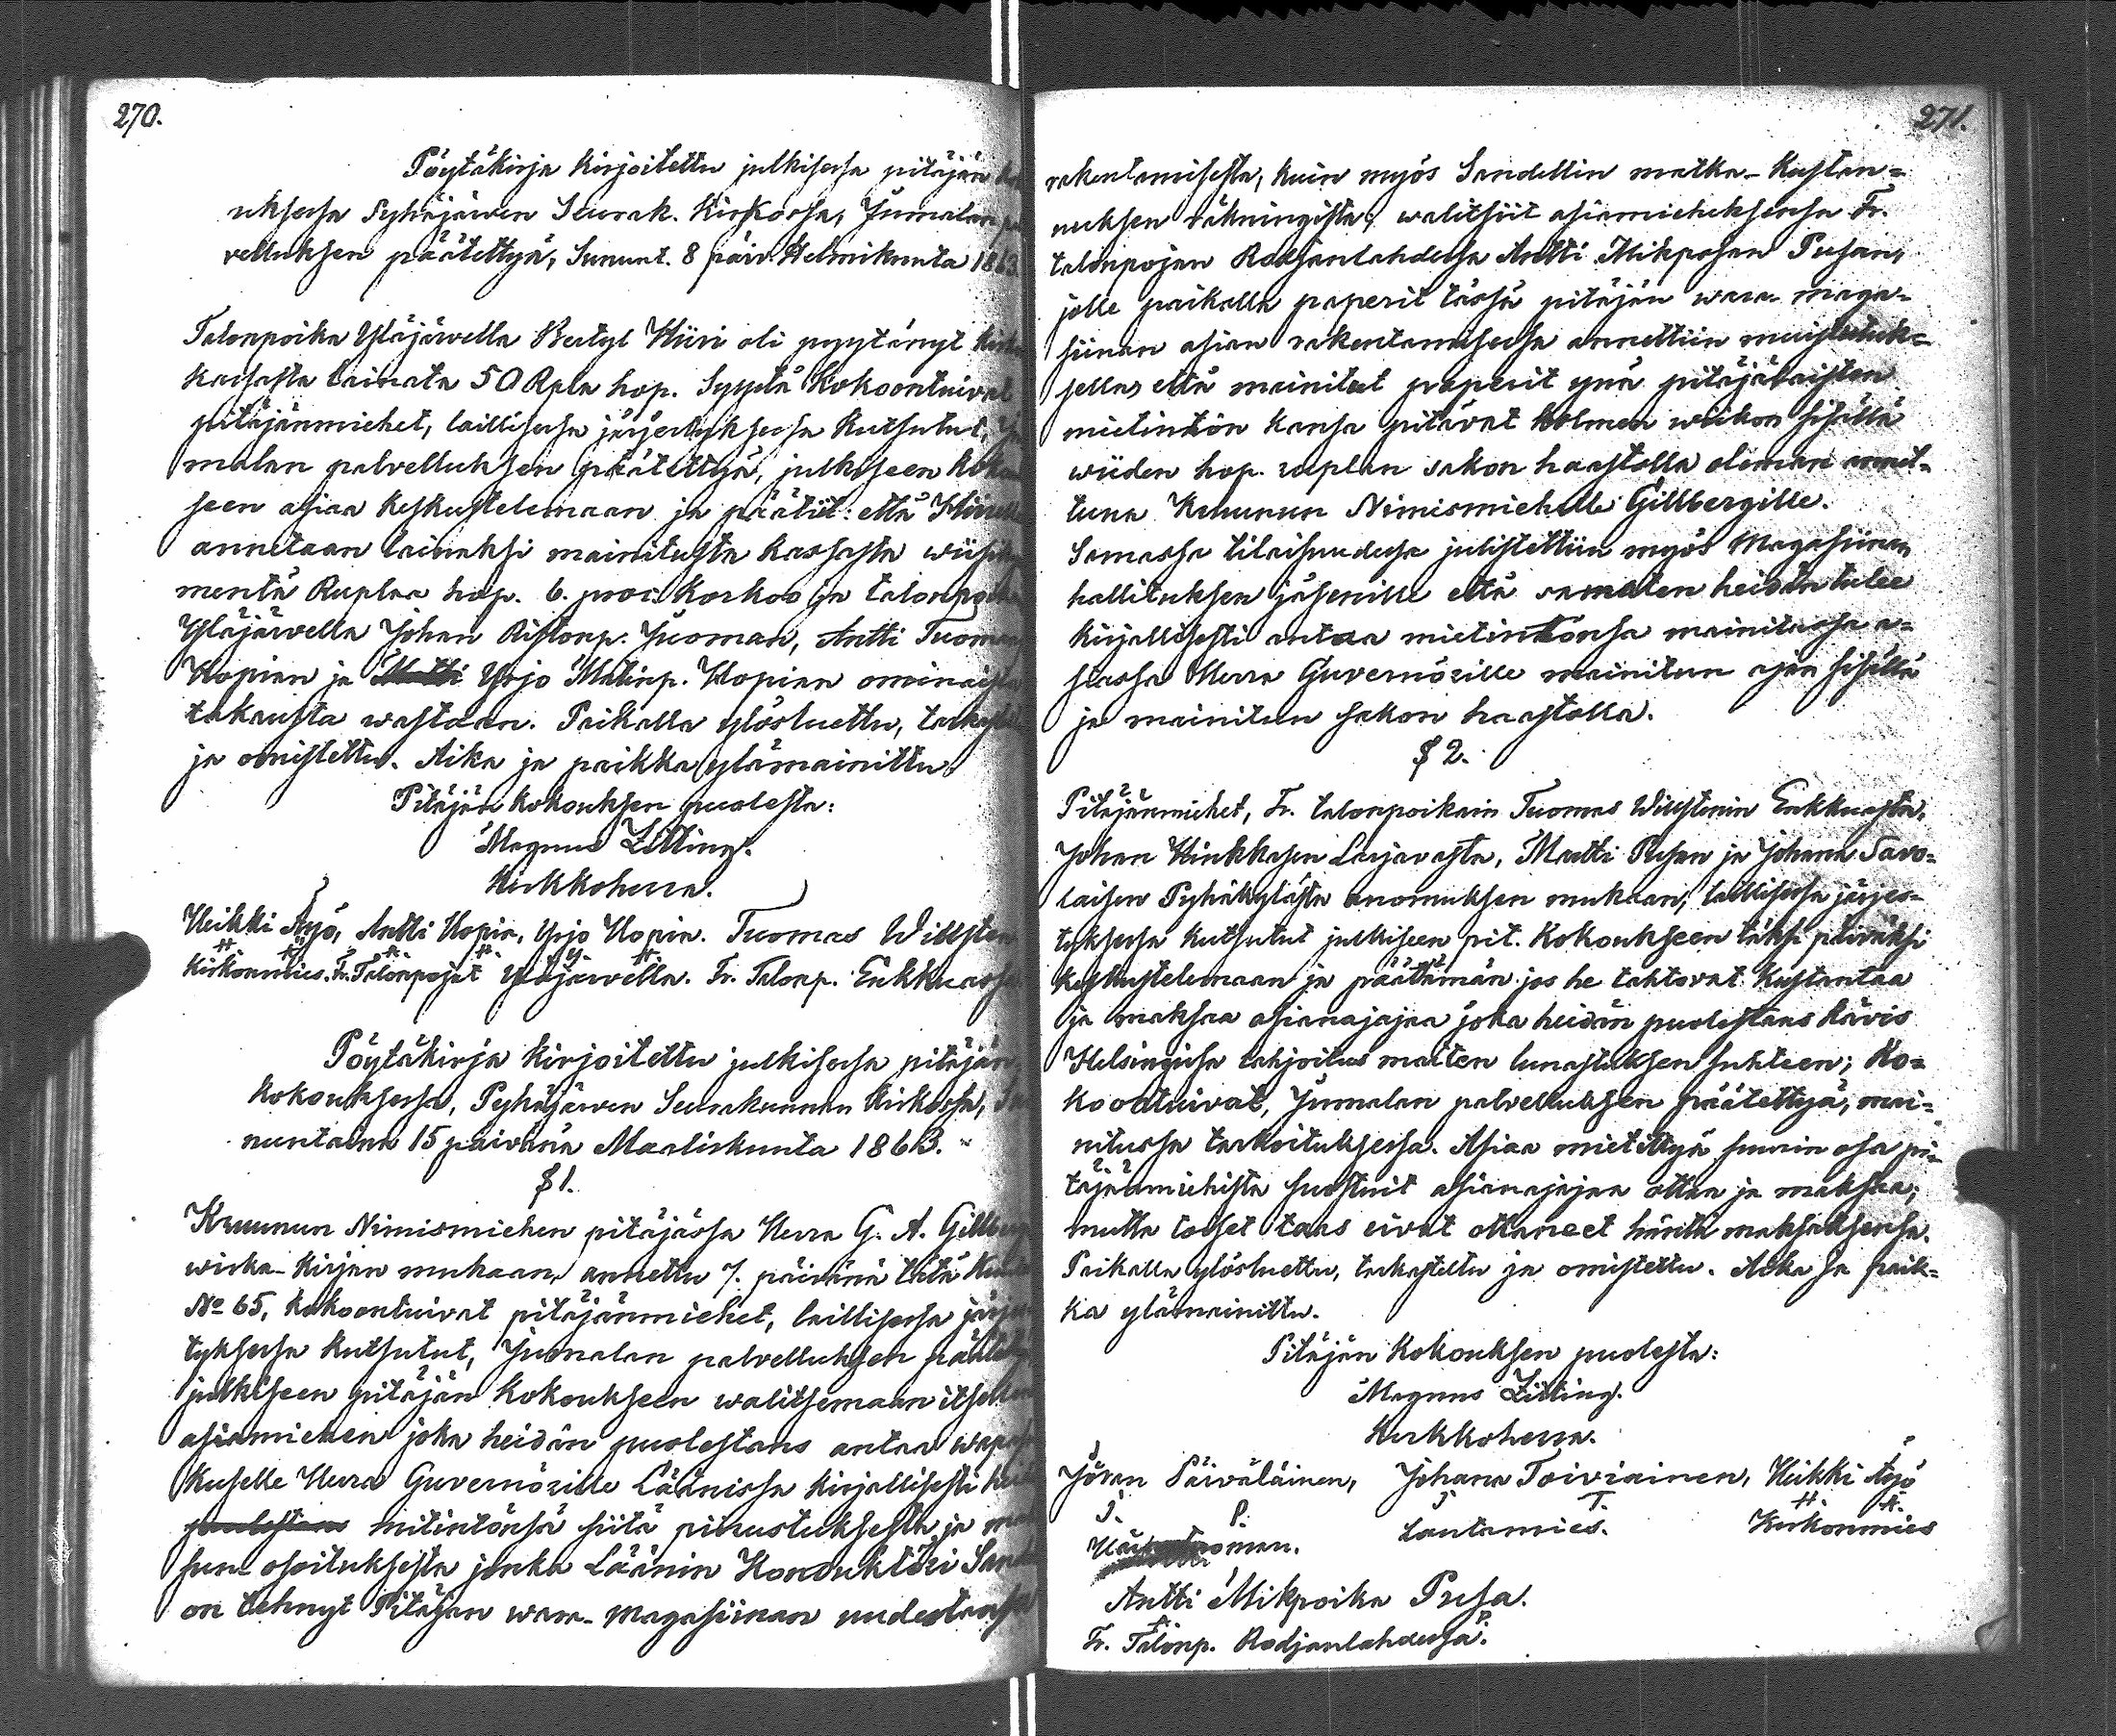 270.
Pöytäkirja Kirjoitettu julkisessa pitäjän
uksessa Pyhäjärven Seurak. Kirkossa, Jumalan
velluksen päätettyä, Sunnt. 8 päiv. Helmikuuta 1863
Talonpoika Yläjärvellä Bertyl Hiiri oli pyytänyt
kassasta lainata 50 Rpla hop. Syystä Kokoontuivat
pitäjänmiehet, laillisessa järjestyksessä Kutsutut,
malan palvelluksen päätettyä, julkiseen
seen asiaa Keskustelemaan ja päätit: että
annetaan lainaksi mainitusta Kassasta
mentä Ruplaa hop. 6. proc. Korkoo ja
Yläjärvellä Johan Ristonp. Juoman, Antti
Hopian ja Matti Yrjo Matinp. Hopian
takausta wastaan. Paikalla ylösluettu,
ja omistettu. Aika ja paikka ylämainittu.
Pitäjän Kokouksen puolesta:
Magnus Zitting.
Kirkkoherra.
Heikki Äyö, Antti Hopia, Yrjo Hopia. Tuomas Willsten
H. Ä. A. H. Y. H.
Kirkonmies. Fr. Talonpojat Yläjärvellä. Fr. Talonp. Enkkuassa
Pöytäkirja Kirjoitettu julkisessa pitäjän
Kokouksessa, Pyhäjärven Seurakunnan Kirkossa,
nuntaina 15 päivänä Maaliskuuta 1863.
§ 1.
Kruunun Nimismiehen pitäjässä Herra G. A.
wirka-Kirjan mukaan, annettu 7. päivänä tätä
No 65, Kokoontuivat pitäjänmiehet, laillisessa
tyksessä Kutsutut, Jumalan palvelluksen
julkiseen pitäjän Kokoukseen walitsemaan
asiamiehen joka heidän puolestans antaa
Kuselle Herra Guvernörille Läänissä Kirjallisesti
puolestans mitintönsä siitä piirustuksesta ja
sun osoituksesta jonka Läänin Konduktöri
on tehnyt Pitäjän wara-magasiinan
271.
rakentamisesta, kuin myös Sandellin matka-Kustan=
nuksen räkningistä; walitsiit asiamieheksensä Fr.
talonpojan Rodjanlahdessa Antti Mikpojan Pusan,
jolle paikalla paperit tässä pitäjän wara-maga=
siinan asian rakentamisessa annettiin muistutuk=
sella, että mainitut paperit ynä pitäjäläisten
mietintön Kansa pitävät Kolmen wiikon sisällä
wiiden hop. ruplan sakon haastolla oleman annet=
tuna Kruunun Nimismiehelle Gillbergille.
Samassa tilaisuudessa julistettiin myös Magasiinan
hallituksen jäsenille että samaten heidän tulee
Kirjallisesti antaa mietintönsä mainitussa a=
siassa Herra Guvernörille mainitun ajan sisällä
ja mainitun sakon haastolla.
§ 2.
Pitäjänmiehet, Fr. talonpoikain Tuomas Willstenin Enkkuasta,
Johan Hinkkasen Larjavasta, Matti Pusan ja Johana Savo=
laisen Pyhäkylästä anomuksen mukaan, laillisessa järjes=
tyksessä Kutsutut julkiseen pit. Kokoukseen täksi päiväksi
Keskustelemaan ja päättämän jos he tahtovat Kustantaa
ja maksaa asianajajaa joka heidän puolestans kävis
Helsingissä lahjoitus maiten lunastuksen suhteen; Ko=
Koontuivat, Jumalan palvelluksen päätettyä, mai=
nitussa tarkoituksessa. Asiaa mietittyä suurin osa pi=
täjänmiehistä suostuit asianajajaa ottaa ja maksaa;
mutta toiset taas eivät ottaneet häntä maksaaksensa.
Paikalla ylösluettu, tarkastettu ja omistettu. Aika ja paik=
ka ylämainittu.
Pitäjän Kokouksen puolesta:
Magnus Zitting.
Kirkkoherra.
Jöran Päiväläinen, Johana Toiviainen, Heikki Äyö
J. P. J. T. H. Ä.
Lautamies. Kirkonmies
Antti Mikpoika Pusa.
A. P.
Fr. Talonp. Rodjanlahdessa.